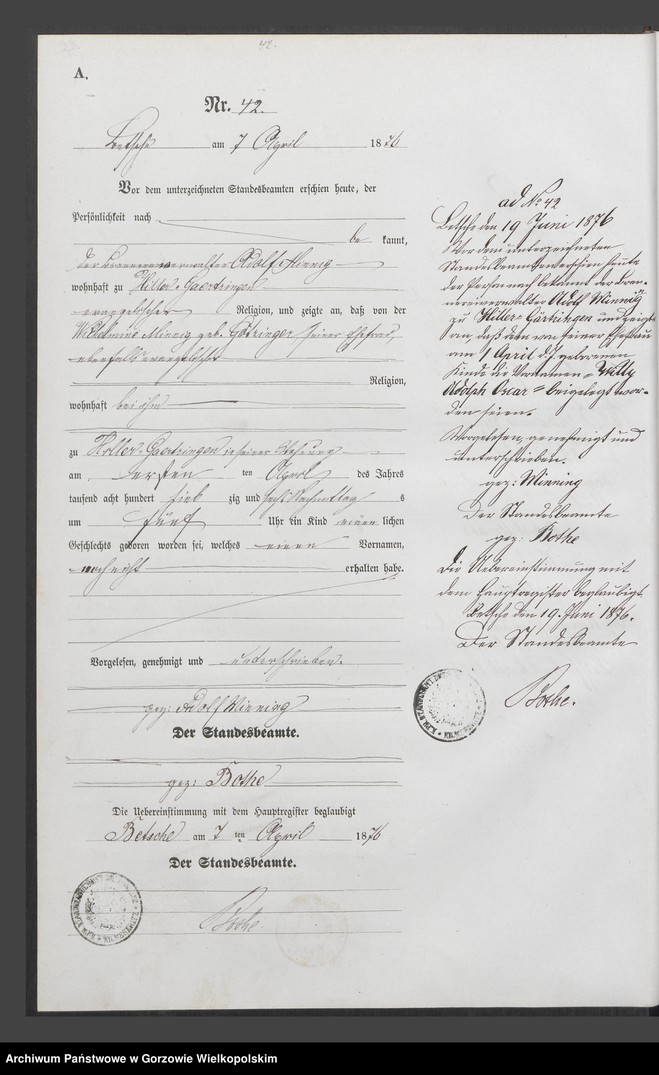 42.
A.
Nr. 42.
Betsche am 7 April 1876
Vor dem unterzeichneten Standesbeamten erschien heute, der
Persönlichkeit nach
be kannt,
der verwalter Adolf Winnig
wohnhaft zu Hiller-Gaertringen
evangelischer Religion, und zeigte an, daß von der
Wilhelmine Winnig geb. seiner Ehefrau,
ebenfalls evangelischer
Religion,
wohnhaft bei ihm
zu Hiller-Gaertringen in seiner Wohnung
am ersten ten April des Jahres
tausend acht hundert sieb zig und sechs Nachmittag s
um fünf Uhr ein Kind männ lichen
Geschlechts geboren worden sei, welches einen Vornamen,
noch nicht erhalten habe.
Vorgelesen, genehmigt und unterschrieben.
gez: Adolf Winning
Der Standesbeamte.
gez: Bothe
Die Uebereinstimmung mit dem Hauptregister beglaubigt
Betsche am 7 ten April 1876
Der Standesbeamte.
Bothe.
ad No 42
Betsche den 19 Juni 1876
Vor dem unterzeichneten
Standesbeamten erschien heute
der Person nach bekannt der
verwalter Adolf Winning
zu Hiller-Gärtringen und zeigte
an, daß dem von seiner Ehefrau
am 1 April d. J. geborenen
Kinde die Vornamen "Willy
Adolph Oscar" beigelegt wor-
den seien.
Vorgelesen, genehmigt und
unterschrieben.
gez: Winning
Der Standesbeamte
gez: Bothe
Die Uebereinstimmung mit
dem Hauptregister beglaubigt.
Betsche den 19. Juni 1876.
Der Standesbeamte
Bothe.
Archiwum Państwowe w Gorzowie Wielkopolskim